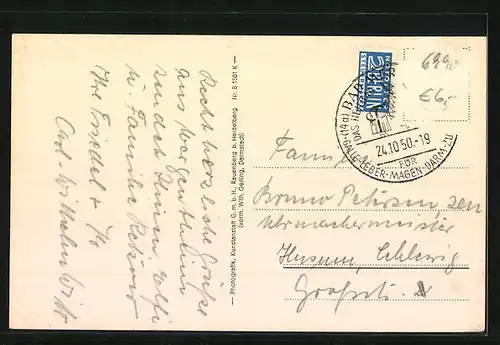 Recht herzliche Grüße
aus Mergentheim
sendet Ihnen
u. Familie Petersen
Ihre Friedel +
Carl Wilhelm Witt
— Photografik, Kunstanstalt G. m. b. H., Rauenberg b. Heidelberg Nr. B 1501 K —
(vorm. Wilh. Gerling, Darmstadt)
NOTOPFER
2 BERLIN
STEUERMARKE
(14a) BAD
DAS HE
24.10.50.-19
FÜR
GALLE-LEBER-MAGEN-DARM-ZU
6990
€6,-
Familie
Bruno Petersen sen
Uhrmachermeister
Husum, Schleswig
Großstr.